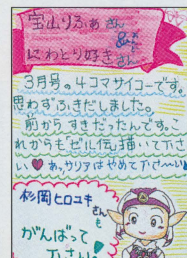 宝山りふぁさん
&
にわとり好きさん
3月号の4コマサイコーです。
思わずふきだしました。
前からすきだったんです。こ
れからもゼル伝描いて下さ
い♥あ、サリアはやめて下さーい
杉岡ヒロユキ
さんも
がんばって
下さい。